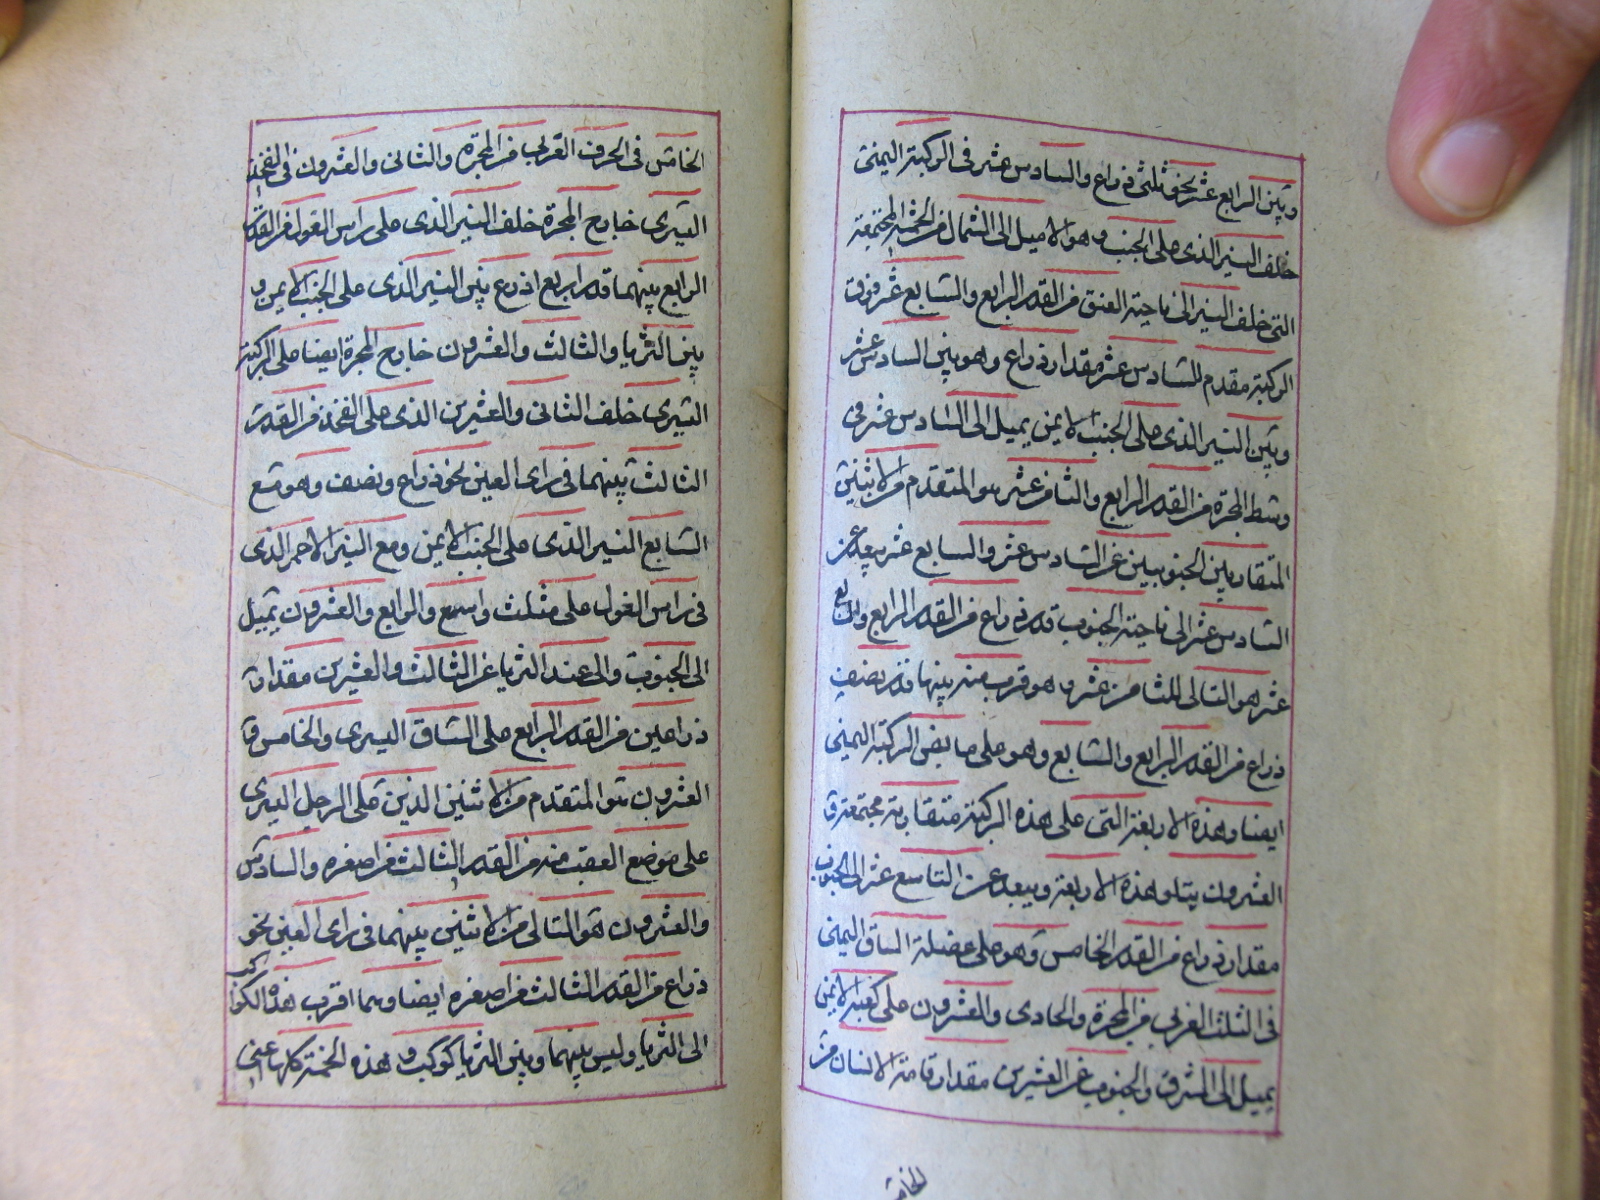 وبين الرابع عشر نحو ثلثى ذراع والسادس عشر فى الركبة اليمنى
خلف النير الذى على الجنب وهو الاميل الى الشمال من الخمسة المجتمعة
التى خلف النير الى ناحية العنق من القدر الرابع والسابع عشر فوق
الركبة مقدم للسادس عشر مقدار ذراع وهو بين السادس عشر
وبين النير الذى على الجنب الايمن يميل الى السادس عشر فى
وسط المجرة من القدر الرابع والثامن عشر هو المتقدم من الاثنين
المتقاربين الجنوبيين عن السادس عشر والسابع عشر يبعد عن
السادس عشر الى ناحية الجنوب قدر ذراع من القدر الرابع والتاسع
عشر هو التالى للثامن عشر وهو قريب منه بينهما قدر نصف
ذراع من القدر الرابع والسابع وهو على مابض الركبة اليمنى
ايضا وهذه الاربعة التى على هذه الركبة متقاربة مجتمعة و
العشرون يتلو هذه الاربعة ويبعد عن التاسع عشر الى الجنوب
مقدار ذراع من القدر الخامس وهو على عضلة الساق اليمنى
فى الثلث الغربى من المجرة والحادى والعشرون على كعبه الايمن
يميل الى الشرق والجنوب عن العشرين مقدار قامة الانسان من
الخامس
الخامس فى الحرف الغربى من المجرة والثانى والعشرون فى الفخذ
اليسرى خارج المجرة خلف النير الذى على راس الغول من القدر
الرابع بينهما قدر اربع اذرع بين النير الذى على الجنب الايمن و
بين الثريا والثالث والعشرون خارج المجرة ايضا على الركبة
اليسرى خلف الثانى والعشرين الذى على الفخذ من القدر
الثالث بينهما فى راى العين نحو ذراع ونصف وهو مع
السابع النير الذى على الجنب الايمن ومع النير الاحمر الذى
فى راس الغول على مثلث واسع والرابع والعشرون يميل
الى الجنوب والى عند الثريا عن الثالث والعشرين مقدار
ذراعين من القدر الرابع على الساق اليسرى والخامس و
العشرون هو المتقدم من الاثنين الذين على الرجل اليسرى
على موضع العقب منه من القدر الثالث من اصغره والسادس
والعشرون هو التالى من الاثنين بينهما فى راى العين نحو
ذراع من القدر الثالث من اصغره ايضا وهما اقرب هذه الكواكب
الى الثريا وليس بينهما وبين الثريا كوكب و هذه الخمسة كلها اعنى